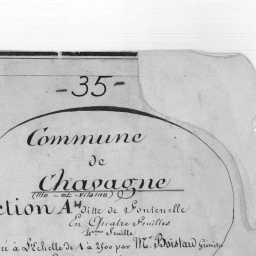 - 35 -
Commune
de
Chavagne
(Ille - et - Vilaine)
ction A dite de Fontenelle
En Quatre Feuilles
Feuille
à l'Echelle de 1 à 2500 par Mr. Boistard